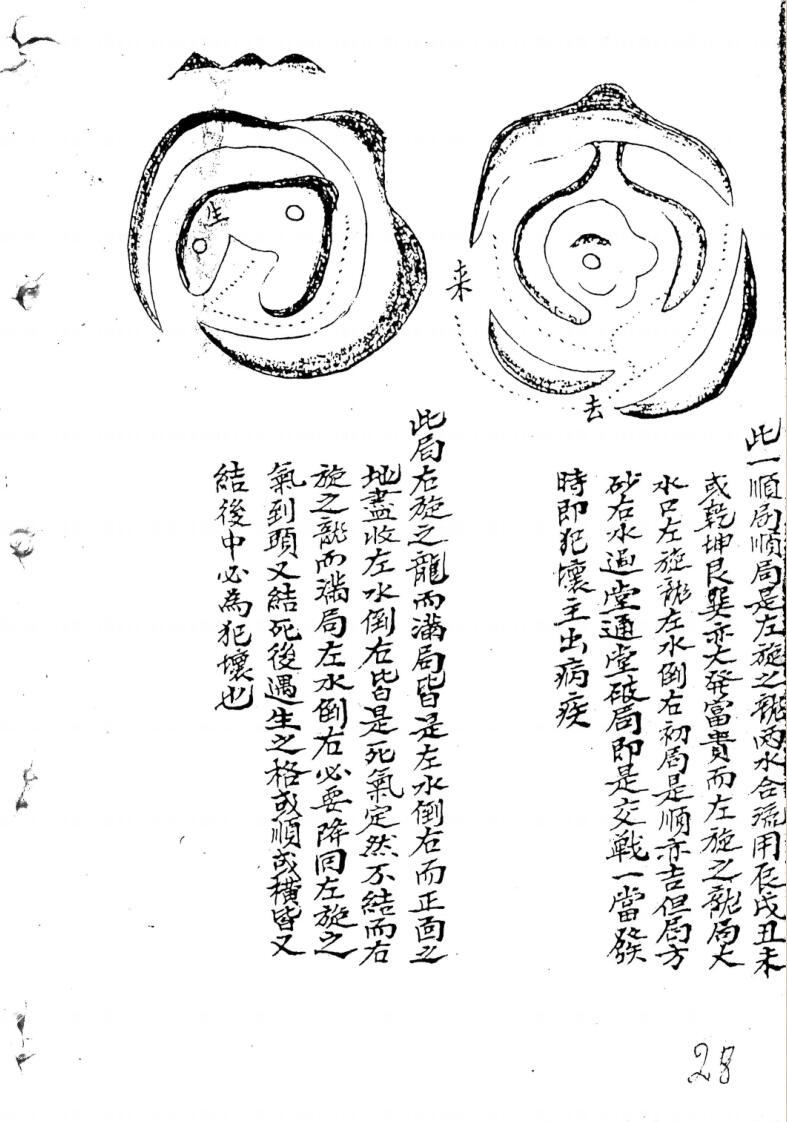 来
去
生
此一順局順局是左旋之龍两水合流用辰戌丑未
或乾坤艮巽亦大發富貴而左旋之龍局大
水口左旋龍左水倒右初局是順亦吉但局方
砂右水過堂通堂破局即是交戦一當發
時即犯壞主出病疾
此局右旋之龍而滿局皆是左水倒右而正面之
地盡收左水倒右皆是死氣定然不結而右
旋之龍而滿局左水倒右必要降同左旋之
氣到頭又結死後遇生之格或順或横皆又
結後中必為犯壞也
28